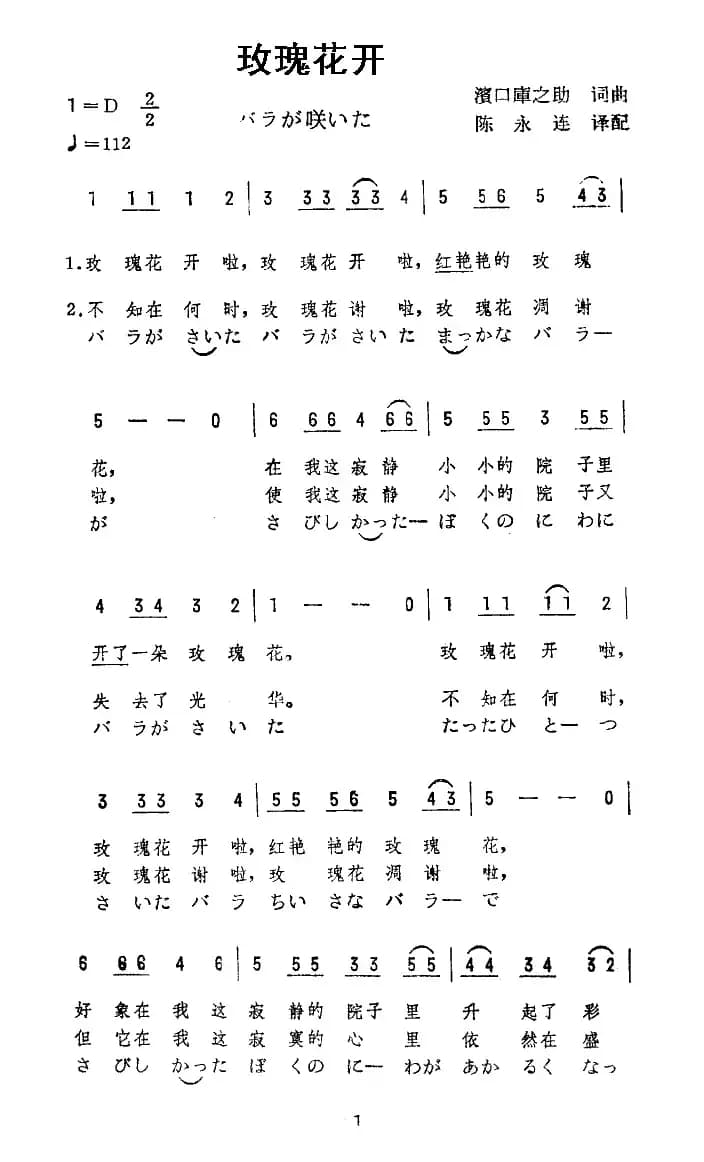 玫瑰花开
1=D 2/2
♩=112
バラが咲いた
濱口庫之助 词曲
陈永连 译配
1 1 1 1 2 | 3 3 3 3 3 4 | 5 5 6 5 4 3 |
1.玫 瑰花 开 啦,玫 瑰花开 啦,红艳艳的 玫 瑰
2.不 知在 何 时,玫 瑰花谢 啦,玫 瑰花 凋 谢
バ ラが さいた バ ラがさいた まっかな バ ラー
5 — — 0 | 6 6 6 4 6 6 | 5 5 5 3 5 5 |
花, 在 我这寂静 小 小的 院 子里
啦, 使 我这寂静 小 小的 院 子又
が さ びしかったーぼ くの に わに
4 3 4 3 2 | 1 — — 0 | 1 1 1 1 1 2 |
开了一朵 玫 瑰 花。 玫 瑰花 开 啦,
失 去了 光 华。 不 知在 何 时,
バ ラが さ い た たったひ とー つ
3 3 3 3 4 | 5 5 5 6 5 4 3 | 5 — — 0 |
玫 瑰花 开 啦,红艳 艳的 玫 瑰 花,
玫 瑰花 谢 啦,玫 瑰花 凋 谢 啦,
さ いた バ ラ ちい さな バ ラー で
6 6 6 4 6 | 5 5 5 3 3 5 5 | 4 4 3 4 3 2 |
好 象在 我 这 寂 静的 院子 里 升 起了 彩
但 它在 我 这 寂 寞的 心 里 依 然在 盛
さ びし かった ぼ くの にーわが あか るく なっ
1